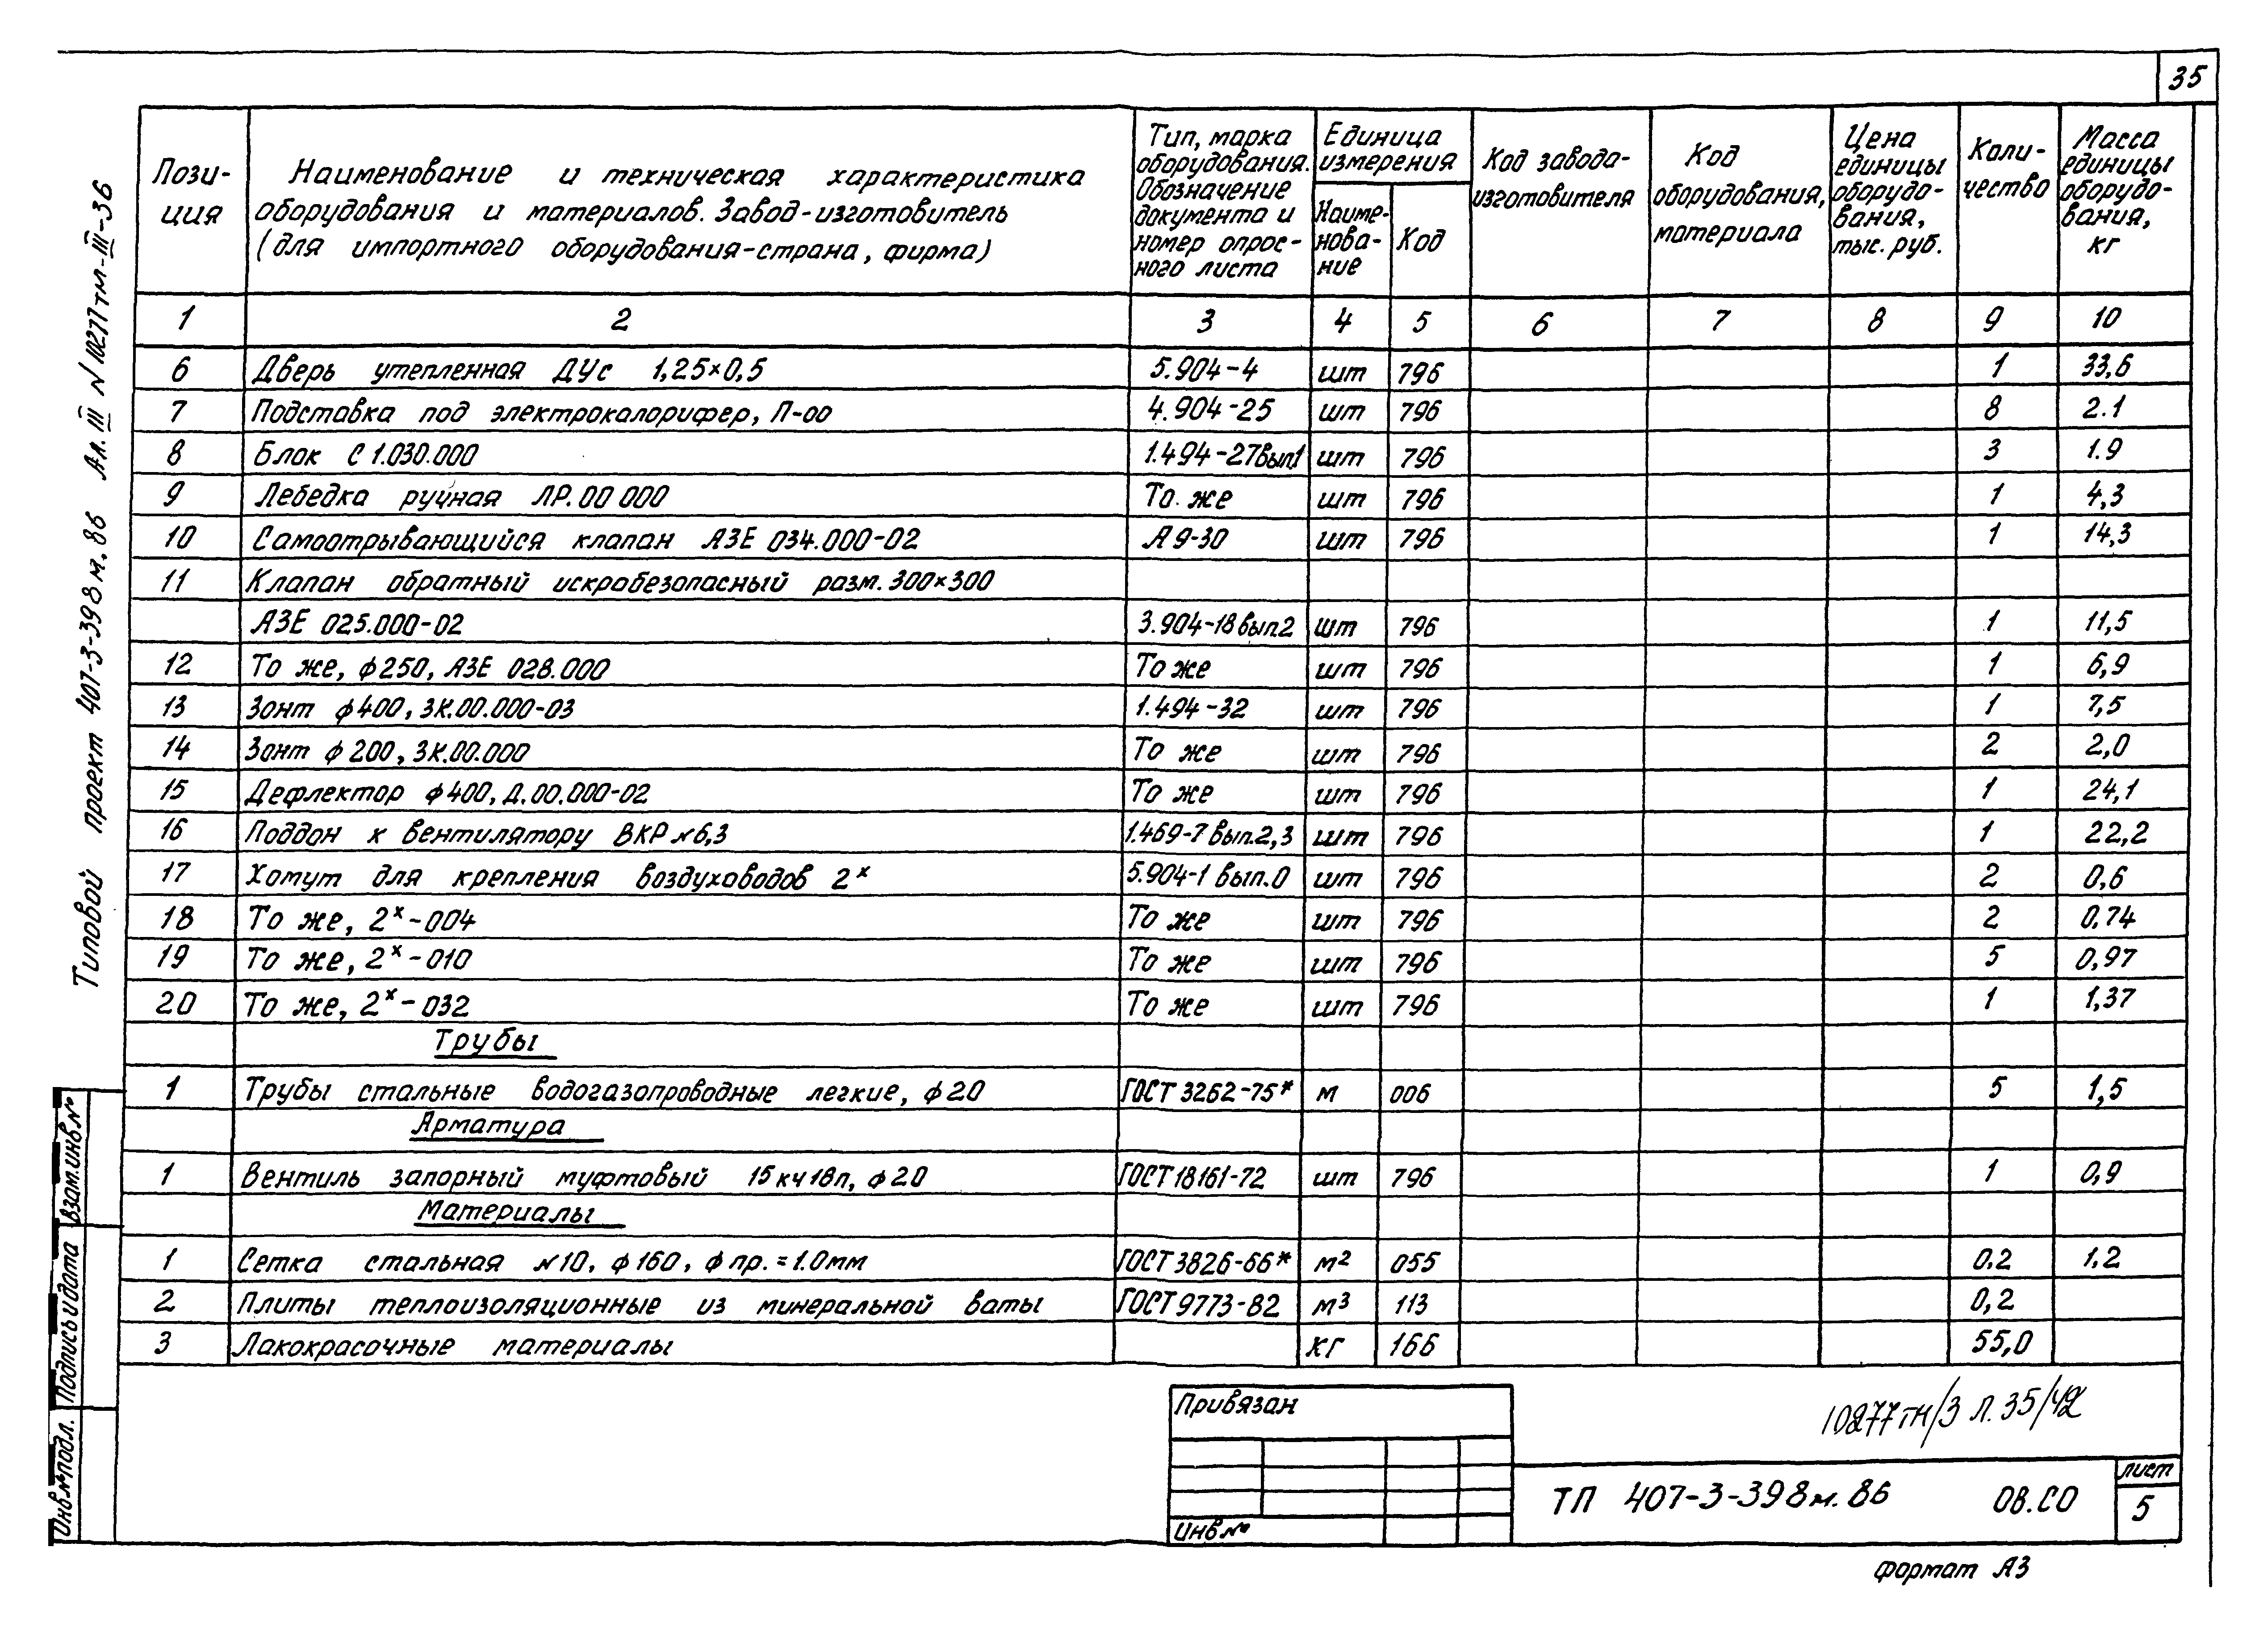 35
Пози-
ция
Наименование и техническая характеристика
оборудования и материалов. Завод-изготовитель
(для импортного оборудования-страна, фирма)
Тип, марка
оборудования.
Обозначение
документа и
номер опрос-
ного листа
Единица
измерения
Наиме-
нова-
ние
Код
Код завода-
изготовителя
Код
оборудования,
материала
Цена
единицы
оборудо-
вания,
тыс. руб.
Коли-
чество
Масса
единицы
оборудо-
вания,
кг
1 2 3 4 5 6 7 8 9 10
6 Дверь утепленная ДУс 1,25×0,5 5.904-4 шт 796 1 33,6
7 Подставка под электрокалорифер, П-00 4.904-25 шт 796 8 2.1
8 Блок С 1.030.000 1.494-27вып1 шт 796 3 1.9
9 Лебедка ручная ЛР.00 000 То же шт 796 1 4,3
10 Самоотрывающийся клапан АЗЕ 034.000-02 А9-30 шт 796 1 14,3
11 Клапан обратный искробезопасный разм. 300×300
АЗЕ 025.000-02 3.904-18 вып2 шт 796 1 11,5
12 То же, ф250, АЗЕ 028.000 То же шт 796 1 6,9
13 Зонт ф400, ЗК.00.000-03 1.494-32 шт 796 1 7,5
14 Зонт ф200, ЗК.00.000 То же шт 796 2 2,0
15 Дефлектор ф400, Д.00.000-02 То же шт 796 1 24,1
16 Поддон к вентилятору ВКР №6,3 1.469-7 вып.2,3 шт 796 1 22,2
17 Хомут для крепления воздуховодов 2ˣ 5.904-1 вып.0 шт 796 2 0,6
18 То же, 2ˣ-004 То же шт 796 2 0,74
19 То же, 2ˣ-010 То же шт 796 5 0,97
20 То же, 2ˣ-032 То же шт 796 1 1,37
Трубы
1 Трубы стальные водогазопроводные легкие, ф20 ГОСТ 3262-75* м 006 5 1,5
Арматура
1 Вентиль запорный муфтовый 15кч18п, ф20 ГОСТ 18161-72 шт 796 1 0,9
Материалы
1 Сетка стальная №10, ф160, ф пр. = 1.0мм ГОСТ 3826-66* м² 055 0.2 1.2
2 Плиты теплоизоляционные из минеральной ваты ГОСТ 9773-82 м³ 113 0,2
3 Лакокрасочные материалы кг 166 55,0
Типовой проект 407-3-398м.86 Ал. III № 10277тм-III-36
Взам.инв.№
Подпись и дата
Инв.№подл.
Привязан
Инв№
10277тм/3 л.35/42
ТП 407-3-398м.86 ОВ.СО
лист
5
формат А3